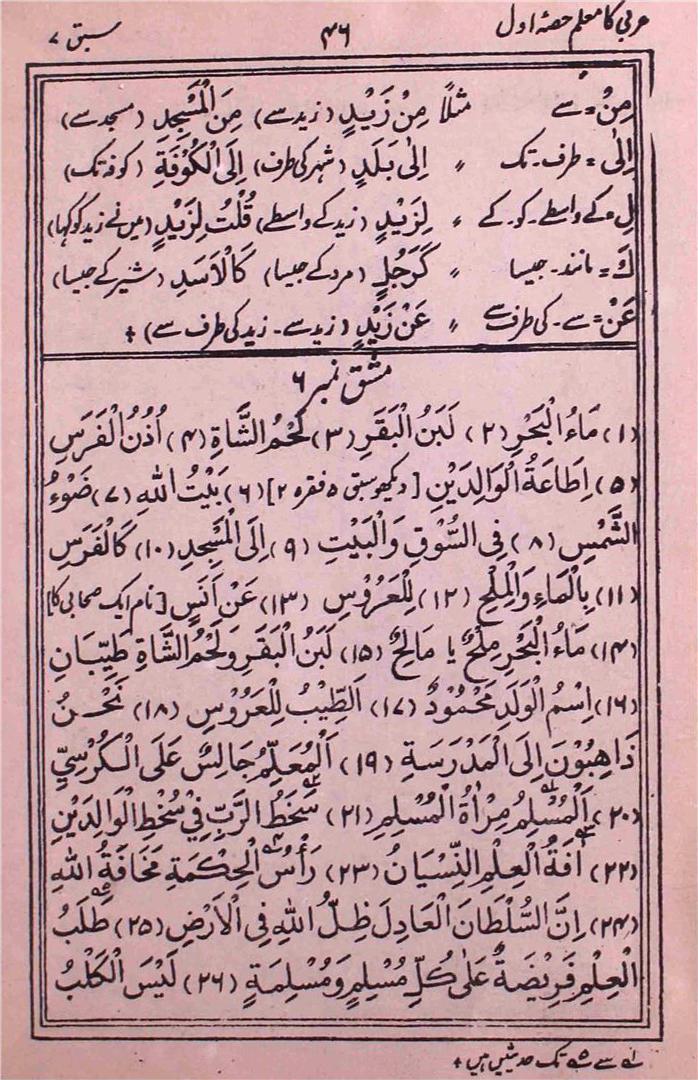 عربی کا معلم حصہ اول ۴۶ سبق ۷
مِنْ = سے مثلاً مِنْ زَیْدٍ (زید سے) مِنَ الْمَسْجِدِ (مسجد سے)
اِلٰی = طرف۔ تک ؍ اِلٰی بَلَدٍ (شہر کی طرف) اِلَی الْکُوْفَةِ (کوفہ تک)
لِ = کے واسطے۔ کو۔ کے ؍ لِزَیْدٍ (زید کے واسطے) قُلْتُ لِزَیْدٍ (میں نے زید کو کہا)
كَ = مانند۔ جیسا ؍ كَرَجُلٍ (مرد کے جیسا) كَالْاَسَدِ (شیر کے جیسا)
عَنْ = سے۔ کی طرف سے ؍ عَنْ زَیْدٍ (زید سے۔ زید کی طرف سے) +
مشق نمبر ۶
(۱) مَاءُ الْبَحْرِ (۲) لَبَنُ الْبَقَرِ (۳) لَحْمُ الشَّاةِ (۴) اُذُنُ الْفَرَسِ
(۵) اِطَاعَةُ الْوَالِدَیْنِ [دیکھو سبق ۵ فقرہ ۲] (۶) بَیْتُ اللهِ (۷) ضَوْءُ
الشَّمْسِ (۸) فِی السُّوْقِ وَالْبَیْتِ (۹) اِلَی الْمَسْجِدِ (۱۰) كَالْفَرَسِ
(۱۱) بِالْمَاءِ وَالْمِلْحِ (۱۲) لِلْعَرُوْسِ (۱۳) عَنْ اَنَسٍ [نام ایک صحابی کا]
(۱۴) مَاءُ الْبَحْرِ مِلْحٌ یا مَالِحٌ (۱۵) لَبَنُ الْبَقَرِ وَلَحْمُ الشَّاةِ طَیِّبَانِ
(۱۶) اِسْمُ الْوَلَدِ مَحْمُوْدٌ (۱۷) اَلطِّیْبُ لِلْعَرُوْسِ (۱۸) نَحْنُ
ذَاهِبُوْنَ اِلَی الْمَدْرَسَةِ (۱۹) اَلْمُعَلِّمُ جَالِسٌ عَلَی الْکُرْسِیِّ
(۲۰) اَلْمُسْلِمُ مِرْاٰةُ الْمُسْلِمِ (۲۱) سَخَطُ الرَّبِّ فِیْ سُخْطِ الْوَالِدَیْنِ
(۲۲) اٰفَةُ الْعِلْمِ النِّسْیَانُ (۲۳) رَأْسُ الْحِکْمَةِ مَخَافَةُ اللهِ
(۲۴) اِنَّ السُّلْطَانَ الْعَادِلَ ظِلُّ اللهِ فِی الْاَرْضِ (۲۵) طَلَبُ
الْعِلْمِ فَرِیْضَةٌ عَلٰی کُلِّ مُسْلِمٍ وَمُسْلِمَةٍ (۲۶) لَیْسَ الْکَلْبُ
۱ سے ۵ تک حدیثیں ہیں +